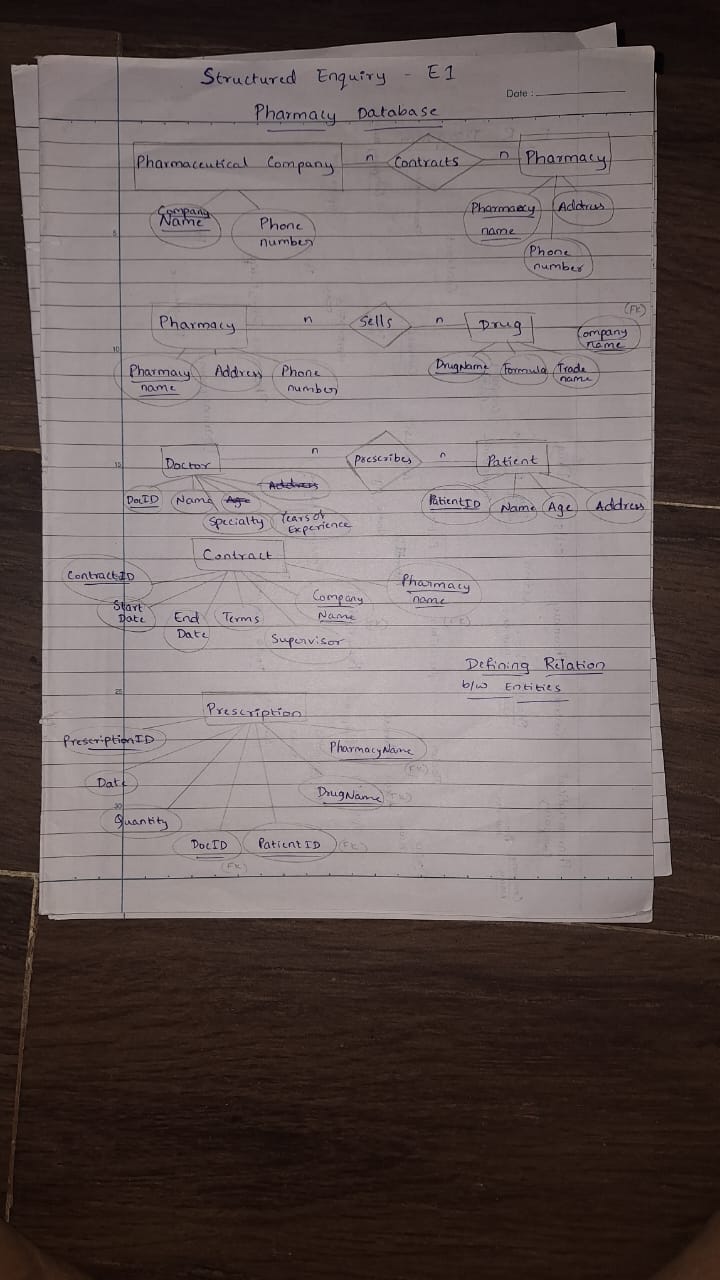 Structured Enquiry - E1
Date :
Pharmacy Database
Pharmaceutical Company n Contracts n Pharmacy
Company Name
Phone number
Pharmacy name
Address
Phone number
Pharmacy n Sells n Drug
(FK)
Company name
Pharmacy name
Address
Phone number
DrugName
Formula
Trade name
5
10
15
Doctor n prescribes n Patient
Address
DocID
Name
Age
Specialty
Years of Experience
PatientID
Name
Age
Address
Contract
ContractID
Start Date
End Date
Terms
Company Name
(FK)
Supervisor
Pharmacy name
(FK)
Defining Relation
b/w Entities
25
Prescription
PrescriptionID
Date
30
Quantity
DocID
(FK)
PatientID (FK)
DrugName (FK)
PharmacyName
(FK)